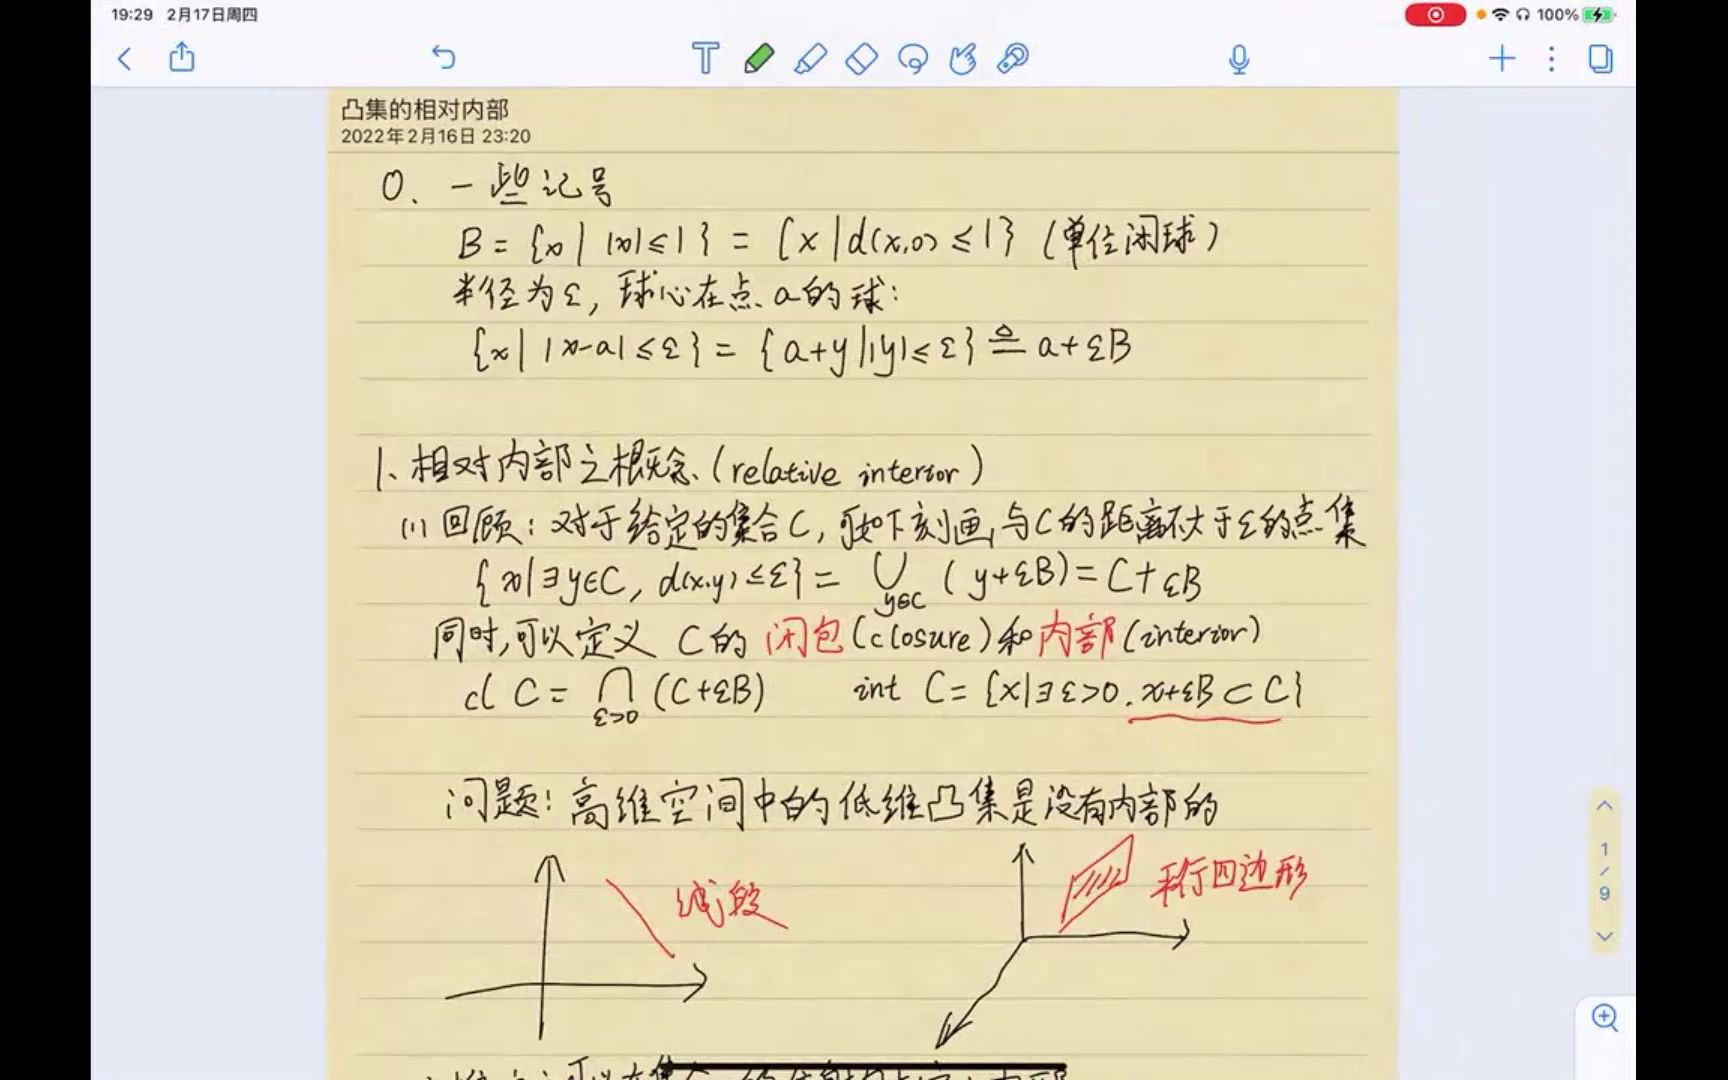 19:29 2月17日周四
100%
凸集的相对内部
2022年2月16日 23:20
0. 一些记号
B = {x | |x| ≤ 1} = {x | d(x,0) ≤ 1} (单位闭球)
半径为ε, 球心在点a的球:
{x | |x-a| ≤ ε} = {a+y | |y| ≤ ε} ≜ a+εB
1. 相对内部之概念 (relative interior)
(1) 回顾: 对于给定的集合C, 可如下刻画与C的距离不大于ε的点集
{x | ∃y∈C, d(x,y) ≤ ε} = ⋃_{y∈C} (y+εB) = C+εB
同时, 可以定义 C的闭包 (closure) 和内部 (interior)
cl C = ⋂_{ε>0} (C+εB) int C = {x | ∃ε>0, x+εB ⊂ C}
问题: 高维空间中的低维凸集是没有内部的
线段
平行四边形
1
/
9